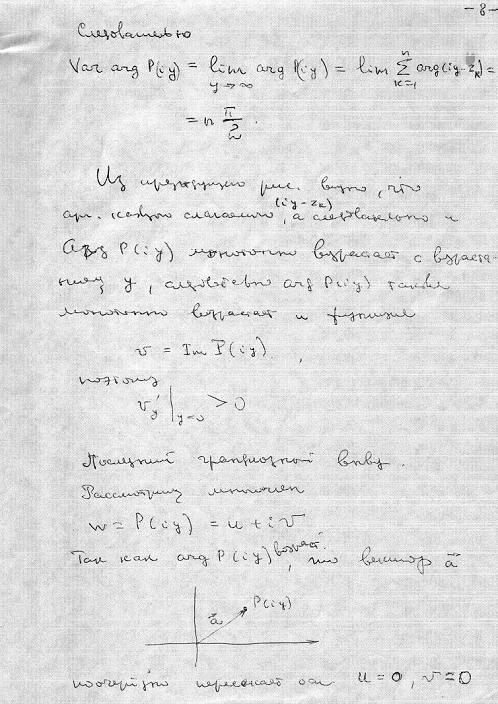 -8-
Следовательно
Var arg P(iy) = lim arg P(iy) = lim Σ arg(iy-z_k) =
y→∞ k=1 n
= n π/2 .
Из предыдущего рис. видно, что
(iy-z_k)
арг. каждого слагаемого, а следовательно и
Arg P(iy) монотонно возрастает с возраста-
нием y, следовательно arg P(iy) также
монотонно возрастает и функция
v = Im P(iy) ,
поэтому
v'_y |_{y=0} > 0
Последний
Рассмотрим многочлен
w = P(iy) = u + iv
Так как arg P(iy) возраст., то вектор a⃗
a⃗ P(iy)
поочерёдно пересекает оси u = 0, v = 0